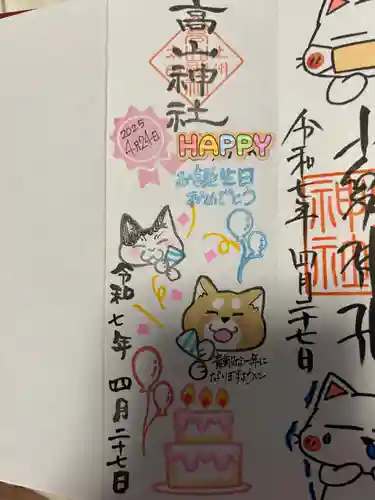 高山神社
2025
4月24日
HAPPY
お誕生日
おめでとう
令和七年 四月二十七日
素敵な一年に
なりますように
令和七年 四月二十七日
神社